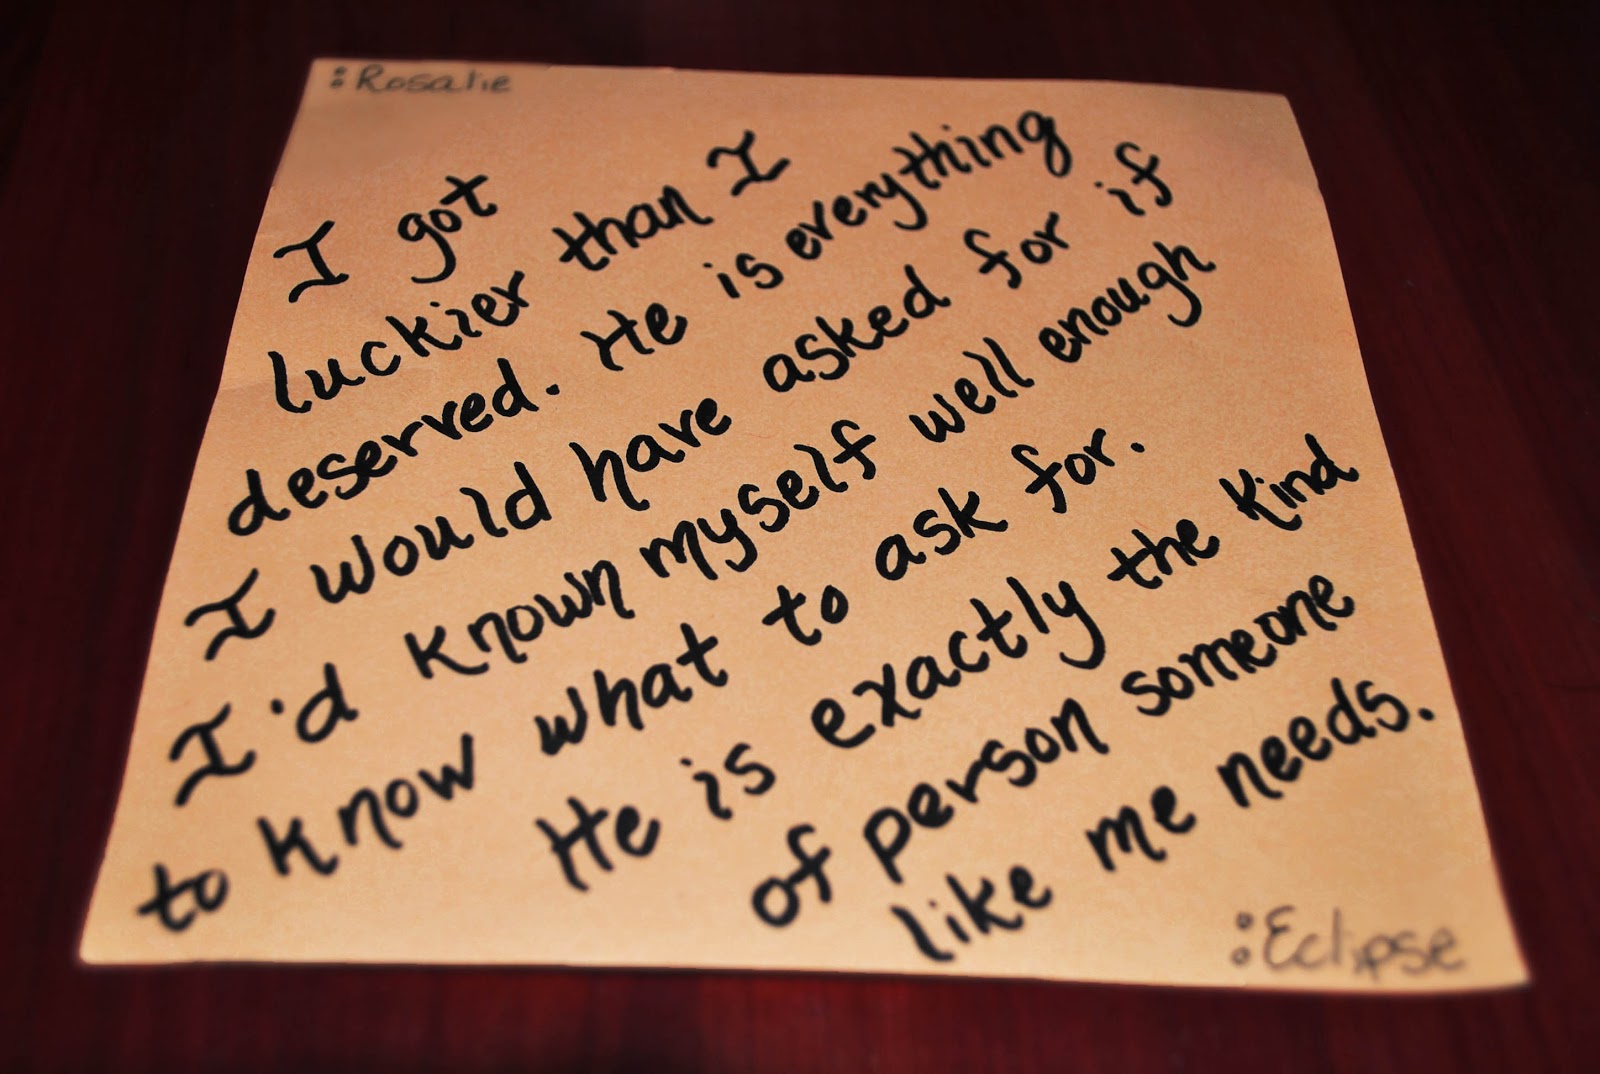 :Rosalie
I got
luckier than I
deserved. He is everything
I would have asked for if
I'd known myself well enough
to know what to ask for.
He is exactly the kind
of person someone
like me needs.
:Eclipse